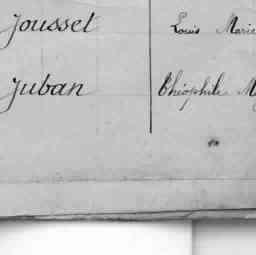 Jousset Louis Marie
Juban Théophile M